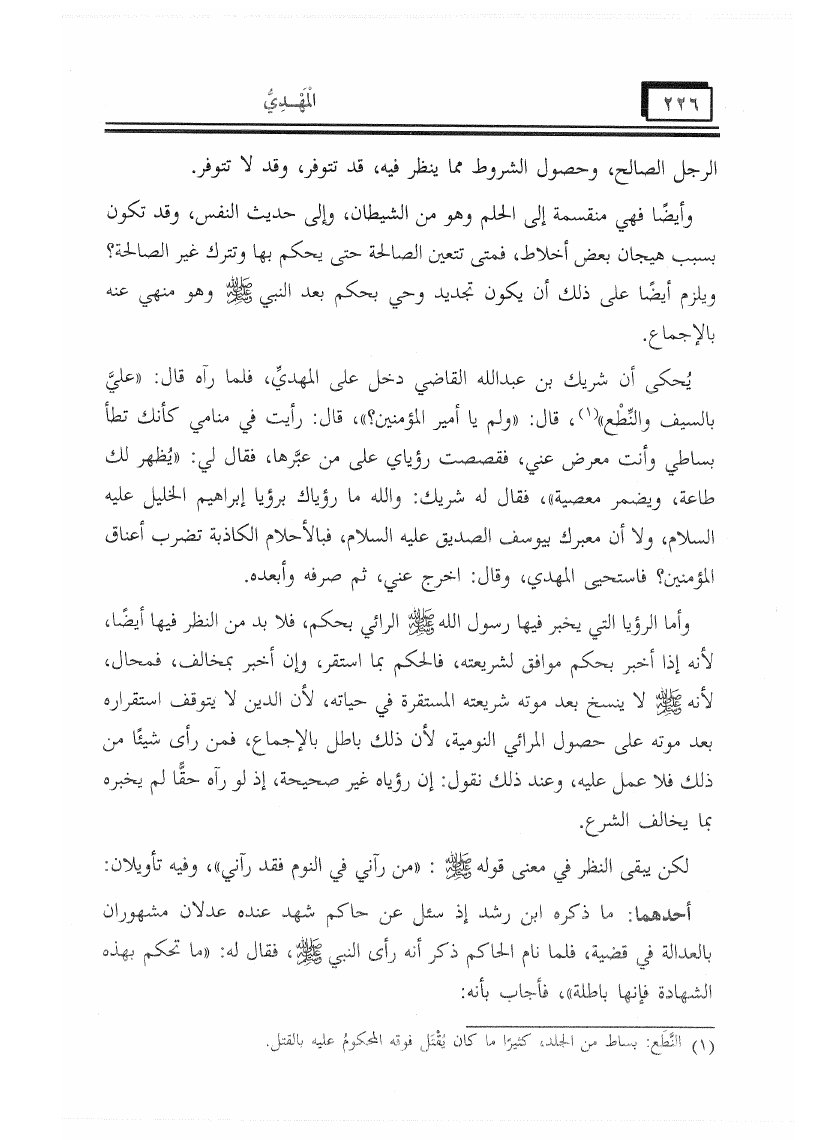 ٢٢٦
الْمَهْـدِيُّ
الرجل الصالح، وحصول الشروط مما ينظر فيه، قد تتوفر، وقد لا تتوفر.
وأيضًا فهي منقسمة إلى الحلم وهو من الشيطان، وإلى حديث النفس، وقد تكون
بسبب هيجان بعض أخلاط، فمتى تتعين الصالحة حتى يحكم بها وتترك غير الصالحة؟
ويلزم أيضًا على ذلك أن يكون تجديد وحي بحكم بعد النبي ﷺ وهو منهي عنه
بالإجماع.
يُحكى أن شريك بن عبدالله القاضي دخل على المهديِّ، فلما رآه قال: «عليَّ
بالسيف والنِّطْع»(١)، قال: «ولم يا أمير المؤمنين؟»، قال: رأيت في منامي كأنك تطأ
بساطي وأنت معرض عني، فقصصت رؤياي على من عبَّرها، فقال لي: «يُظهر لك
طاعة، ويضمر معصية»، فقال له شريك: والله ما رؤياك برؤيا إبراهيم الخليل عليه
السلام، ولا أن معبرك بيوسف الصديق عليه السلام، فبالأحلام الكاذبة تضرب أعناق
المؤمنين؟ فاستحيى المهدي، وقال: اخرج عني، ثم صرفه وأبعده.
وأما الرؤيا التي يخبر فيها رسول الله ﷺ الرائي بحكم، فلا بد من النظر فيها أيضًا،
لأنه إذا أخبر بحكم موافق لشريعته، فالحكم بما استقر، وإن أخبر بمخالف، فمحال،
لأنه ﷺ لا ينسخ بعد موته شريعته المستقرة في حياته، لأن الدين لا يتوقف استقراره
بعد موته على حصول المرائي النومية، لأن ذلك باطل بالإجماع، فمن رأى شيئًا من
ذلك فلا عمل عليه، وعند ذلك نقول: إن رؤياه غير صحيحة، إذ لو رآه حقًّا لم يخبره
بما يخالف الشرع.
لكن يبقى النظر في معنى قوله ﷺ : «من رآني في النوم فقد رآني»، وفيه تأويلان:
أحدهما: ما ذكره ابن رشد إذ سئل عن حاكم شهد عنده عدلان مشهوران
بالعدالة في قضية، فلما نام الحاكم ذكر أنه رأى النبي ﷺ، فقال له: «ما تحكم بهذه
الشهادة فإنها باطلة»، فأجاب بأنه:
(١) النَّطَع: بساط من الجلد، كثيرًا ما كان يُقْتَل فوقه المحكومُ عليه بالقتل.